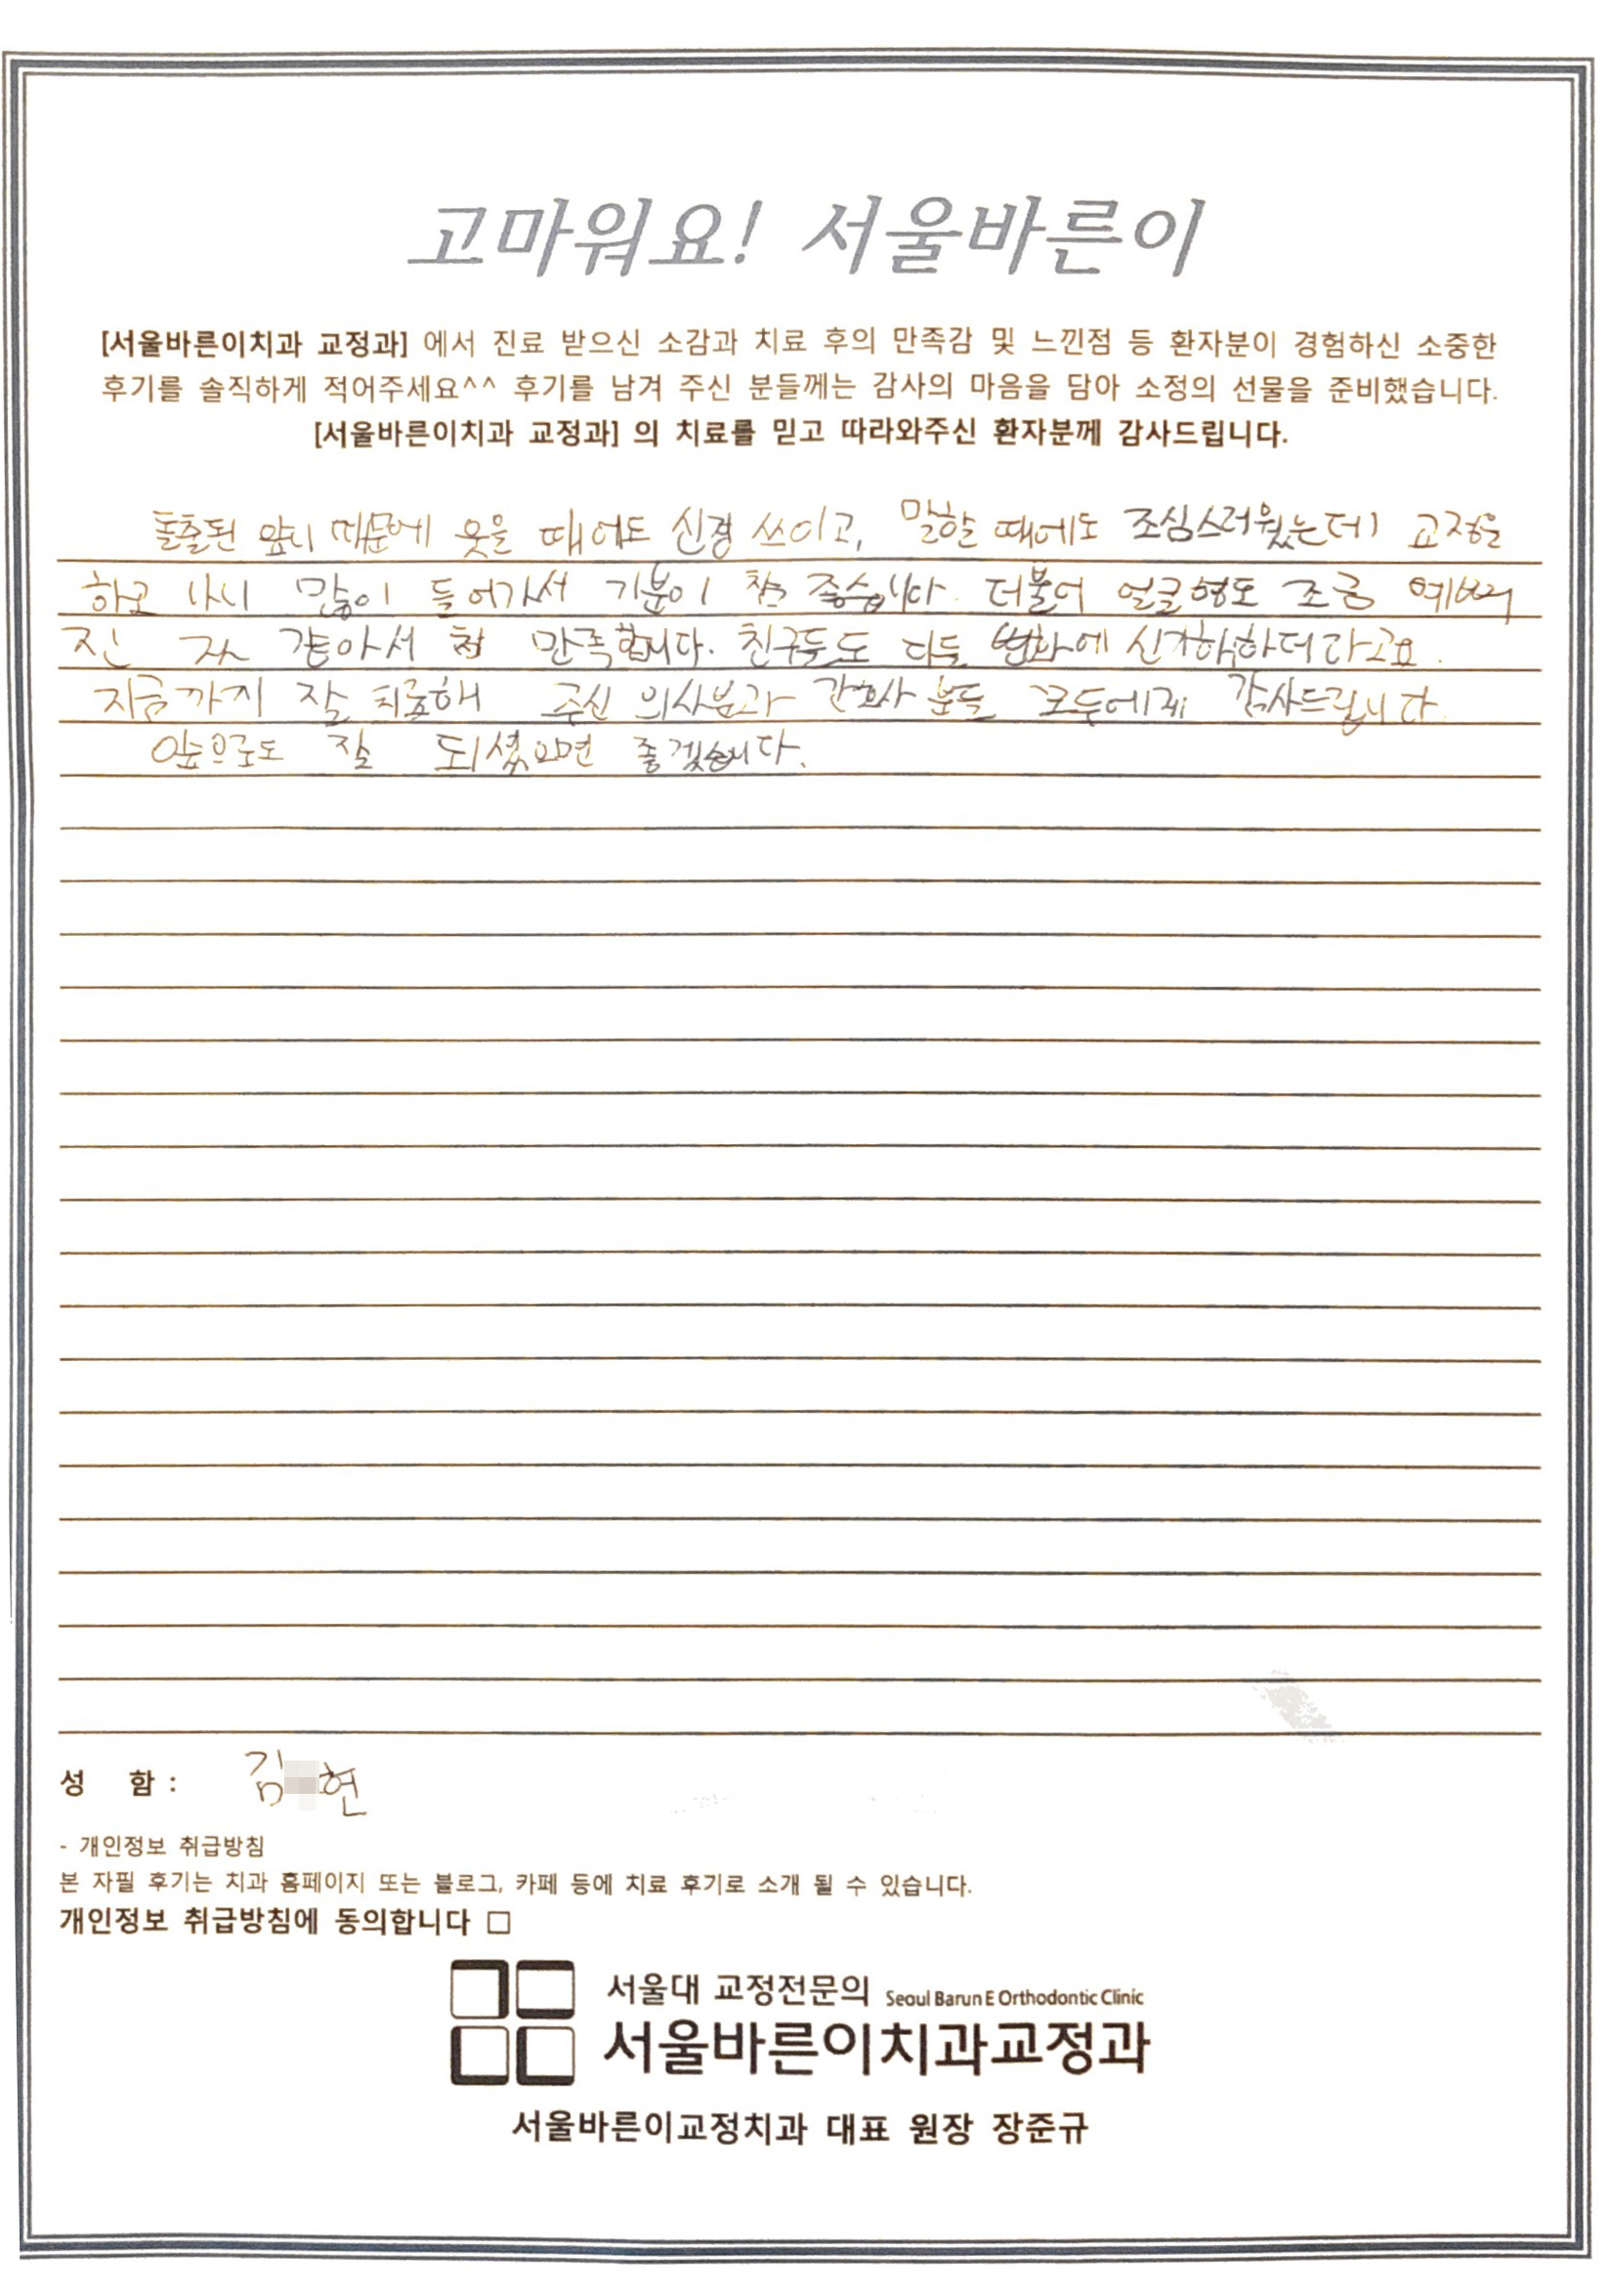 고마워요! 서울바른이
[서울바른이치과 교정과] 에서 진료 받으신 소감과 치료 후의 만족감 및 느낀점 등 환자분이 경험하신 소중한
후기를 솔직하게 적어주세요^^ 후기를 남겨 주신 분들께는 감사의 마음을 담아 소정의 선물을 준비했습니다.
[서울바른이치과 교정과] 의 치료를 믿고 따라와주신 환자분께 감사드립니다.
돌출된 앞니 때문에 웃을 때에도 신경 쓰이고, 말할 때에도 조심스러웠는데 교정을
하고 나니 많이 들어가서 기분이 참 좋습니다. 더불어 얼굴형도 조금 예뻐
진 것 같아서 참 만족합니다. 친구들도 다들 변화에 신기해하더라고요.
지금까지 잘 치료해 주신 의사분과 간호사 분들 모두에게 감사드립니다.
앞으로도 잘 되셨으면 좋겠습니다.
성 함 : 김 현
- 개인정보 취급방침
본 자필 후기는 치과 홈페이지 또는 블로그, 카페 등에 치료 후기로 소개 될 수 있습니다.
개인정보 취급방침에 동의합니다 □
서울대 교정전문의 Seoul Barun E Orthodontic Clinic
서울바른이치과교정과
서울바른이교정치과 대표 원장 장준규